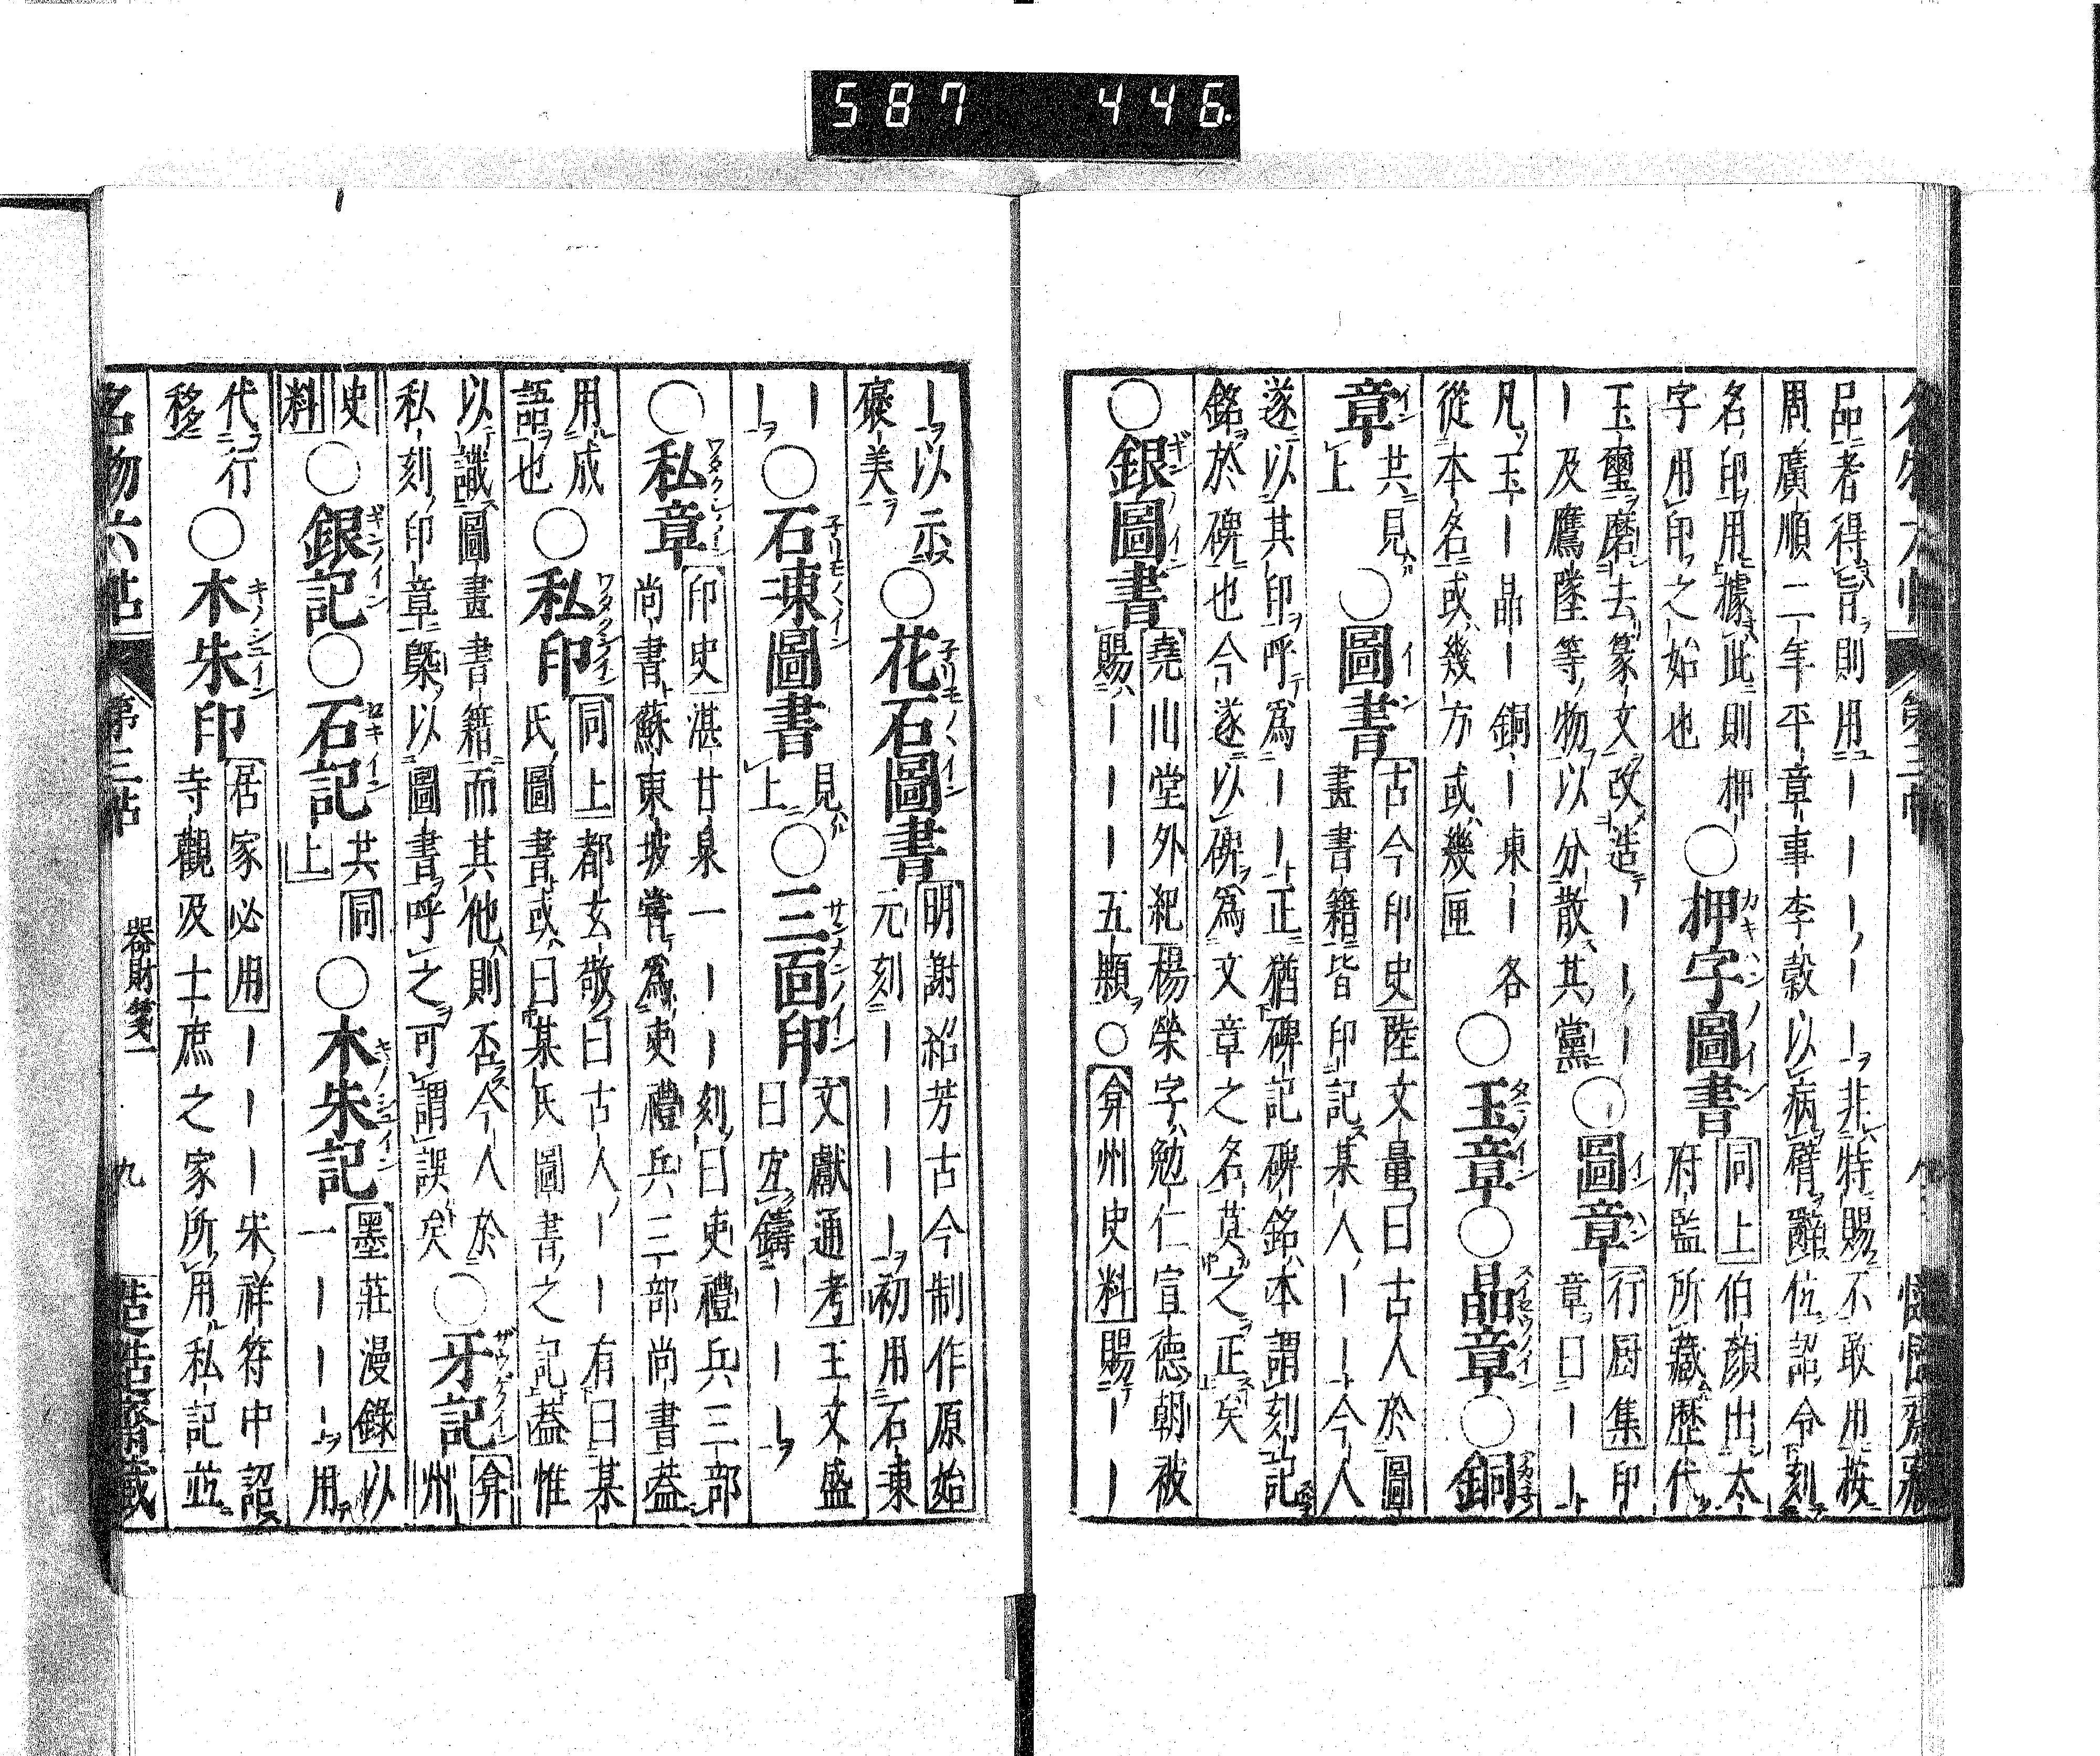 587 446.
品者得旨則用｜｜｜｜非特賜不敢用按
周廣順二年平章事李穀以病臂辭位詔令刻
名印用據此則押
字用印之始也
○押字圖書
同上伯顏出太
府監所藏歷代
玉璽磨去篆文改造｜｜｜
｜及鷹墜等物以分散其黨
○圖章
行厨集印
章曰｜｜
凡玉｜晶｜銅｜凍｜各
從本名或幾方或幾匣
○玉章○晶章○銅
章
共見
上
○圖書
古今印史陸文量曰古人於圖
畫書籍皆印記某人｜｜今人
遂以其印呼爲｜｜正猶碑記碑銘本謂刻記
銘於碑也今遂以碑爲文章之名莫之正矣
○銀圖書
堯山堂外紀楊榮字勉仁宣德朝被
賜｜｜｜五顆○弇州史料賜｜｜
｜以示
褒美
○花石圖書
明謝紹芳古今制作原始
元刻｜｜｜｜初用石凍
｜
｜
○石凍圖書
見
上
○三面印
文獻通考王文盛
曰宜鑄｜｜｜
○私章
印史湛甘泉一｜｜刻曰吏禮兵三部
尚書蘇東坡嘗爲吏禮兵三部尚書蓋
用成
語也
○私印
同上都玄敬曰古人｜｜有曰某
氏圖書或曰某氏圖書之記蓋惟
以識圖畫書籍而其他則否今人於
私刻印章槩以圖書呼之可謂誤矣
○牙記
弇
州
史
料
○銀記○石記
共同
上
○木朱記
墨莊漫錄以
一｜｜｜用
代行
移
○木朱印
居家必用｜｜｜宋祥符中詔
寺觀及士庶之家所用私記並
名物六帖 第三帖 器財箋一 九